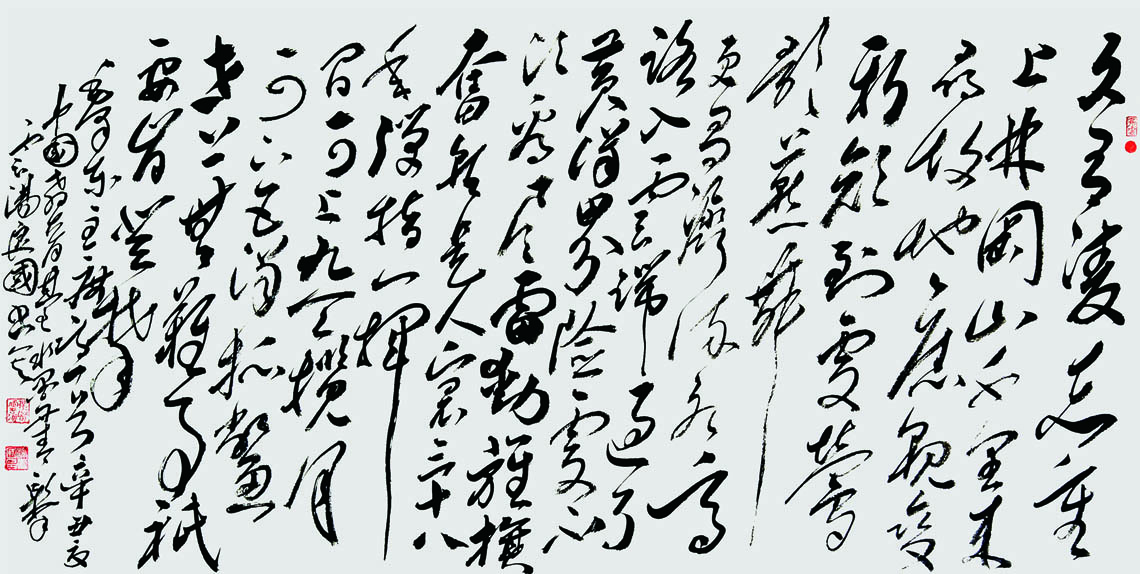 久有凌志重
上井冈山千里来
寻故地旧貌变
新颜到处莺
歌燕舞
更有潺潺流水高
路入云端过了
黄洋界险处不
须看风雷动旌旗
奋是人寰三十八
年弹指一挥
间可上九天揽月
可下五洋捉鳖
世上无难事祇
要肯登攀
毛泽东主席词一首辛丑夏
中国